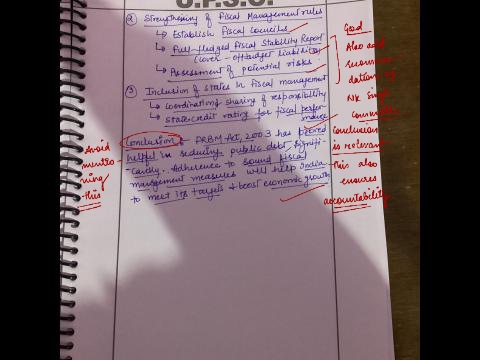 U.P.S.C.
② Strengthening of Fiscal Management rules
↳ Establish fiscal councils
↳ Full-fledged Fiscal Stability Report
(cover - offbudget liability)
↳ Assessment of potential risks.
③ Inclusion of states in fiscal management
↳ Coordination & sharing of responsibility
↳ State-credit rating for fiscal performance
Conclusion :- FRBM Act, 2003 has proved
helpful in reducing public debt signifi-
cantly. Adherence to sound fiscal
management measures will help India
to meet its targets & boost economic growth
Good
Also add
recomm-
dation of
NK Singh
Committee
Conclusion
is relevant
This also
ensures
accountability
Avoid
mentio
ning
this